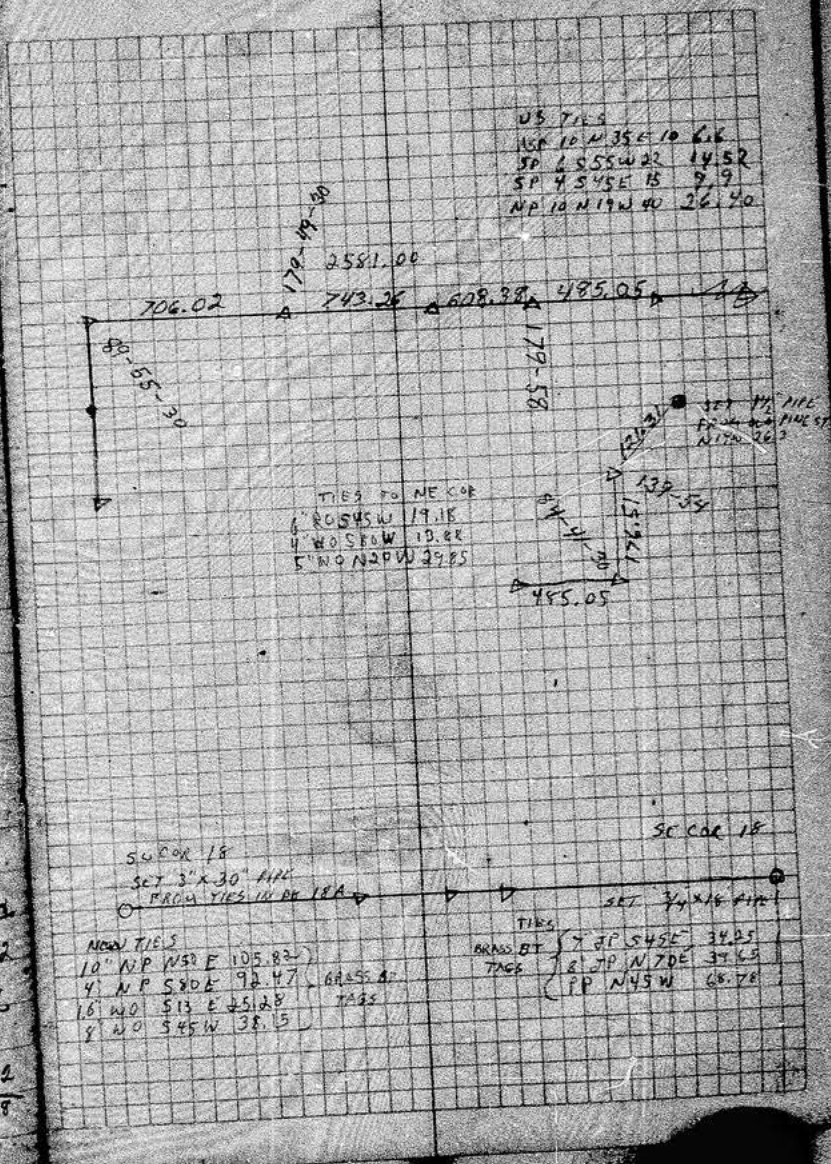 US TIES
10 N 35 E 10 6.6
SP 6 S55W 22 14.52
SP 4 S45E 15 9.9
NP 10 N19W 40 26.40
179-49-30
2581.00
706.02
743.26
608.38
485.05
89-55-30
179-58
SET 1½" PIPE
FROM PINE ST
N19W 26.
139-54
176.51
84-41-30
485.05
TIES TO NE COR
6" RO S45W 19.18
4" WO S80W 13.88
5" WO N20W 29.85
SE COR 18
SW COR 18
SET 3" x 30" PIPE
FROM TIES IN 18A
SET 3/4 x 18 PIPE
NEW TIES
10" NP N50 E 105.82
4" NP S80E 92.47
16" WO S13 E 25.28
8" WO S45W 38.15
BRASS BT
TAGS
TIES
BRASS BT
TAGS
7 JP S45E 34.25
8 JP N70E 39.65
PP N45W 68.78